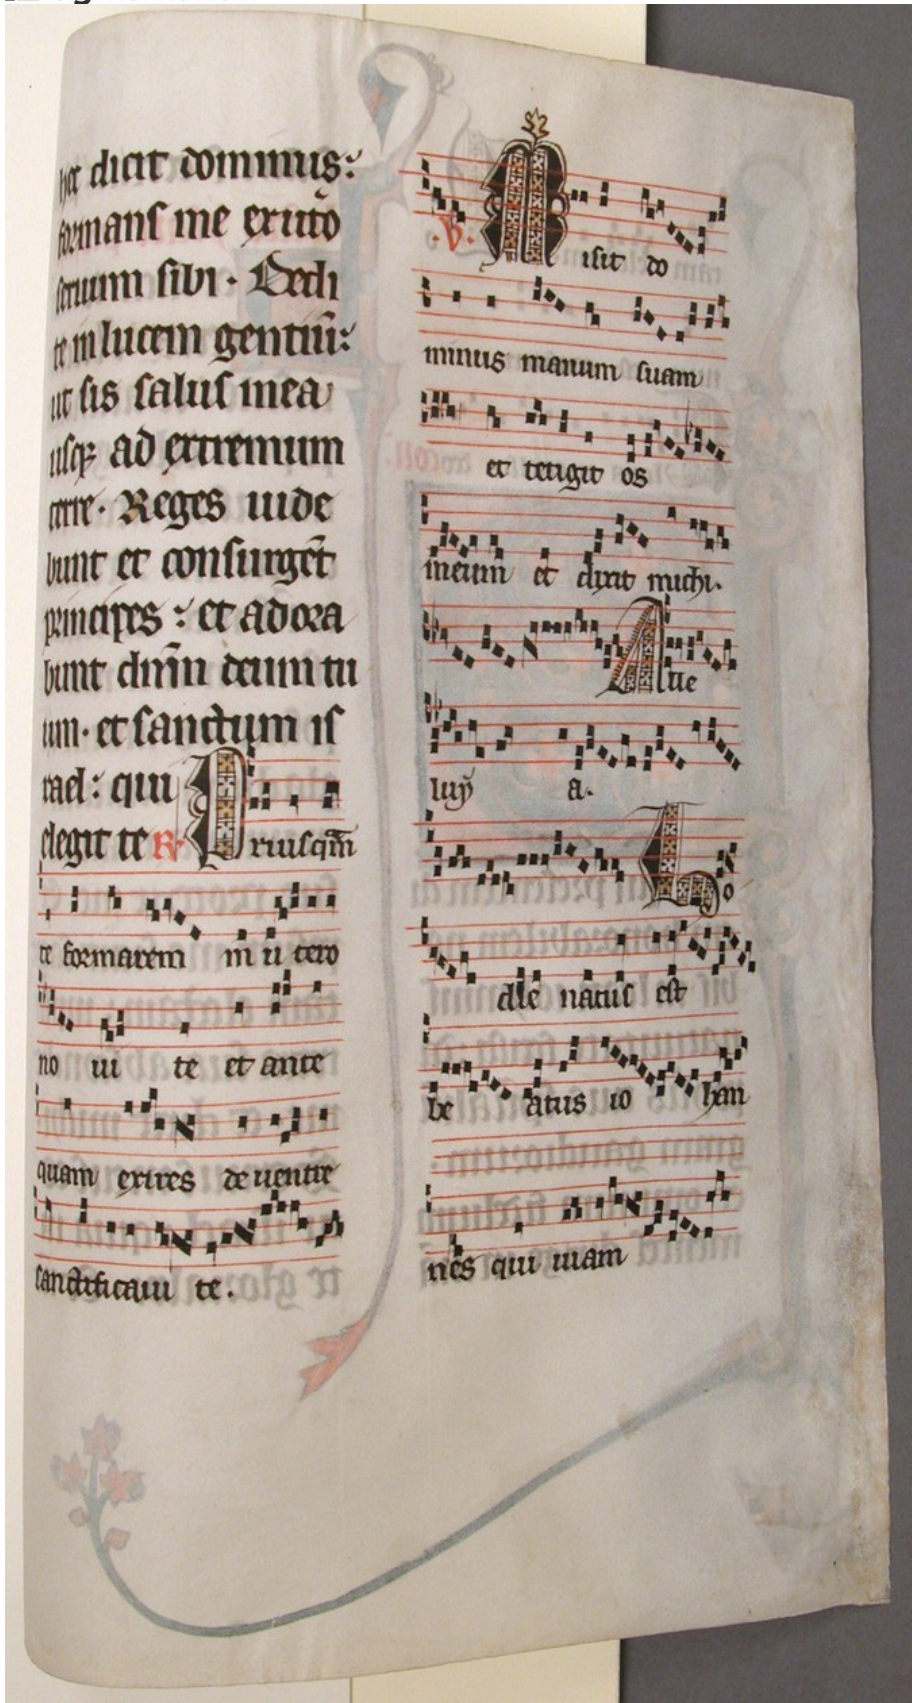 hec dicit dominus:
formans me ex uto
seruum sibi. Dedi
te in lucem gentiū:
ut sis salus mea
usqꝫ ad extremum
terre. Reges uide
bunt et consurgēt
principes: et adora
bunt dn̄m deum tu
um. et sanctum is
rael: qui
elegit te R. Priusqm̄
te formarem in utero
no ui te et ante
quam exires de uentre
sanctificaui te.
V. Misit do
minus manum suam
et tetigit os
meum et dixit michi.
Alle
luy a.
Ho
die natus est
be atus io han
nes qui uiam